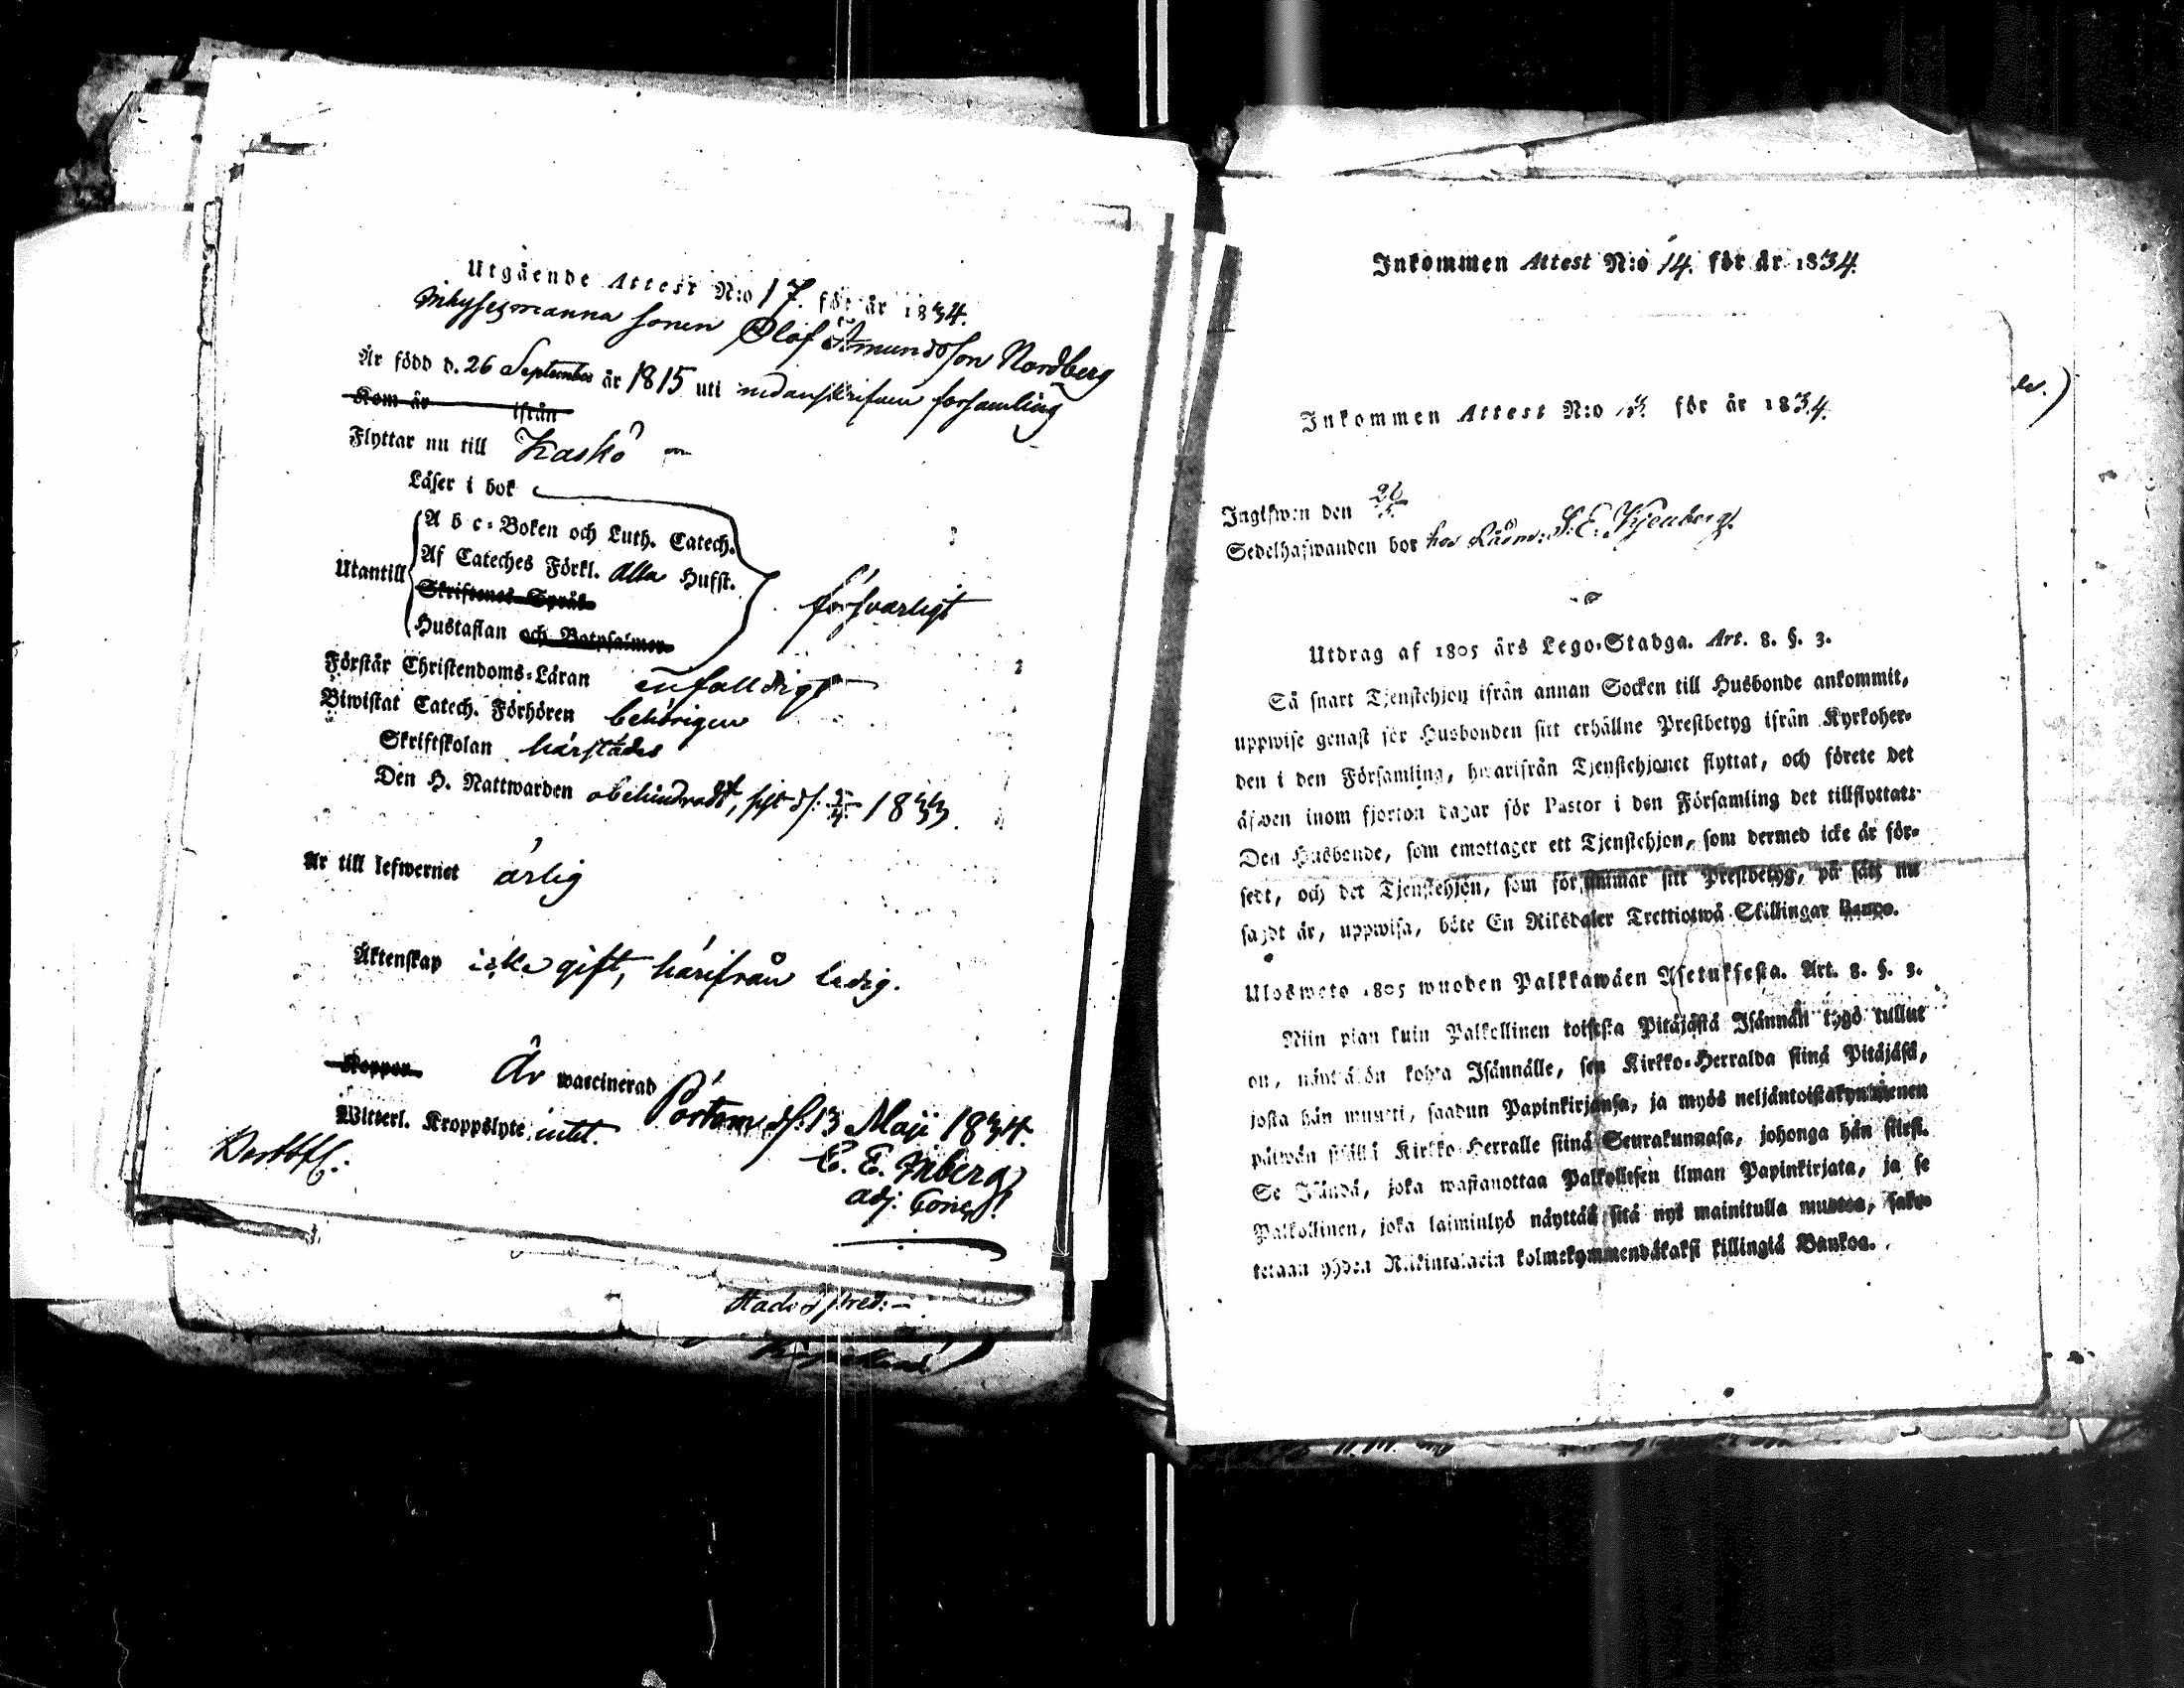 Utgående Attest N:o 17. för år 1834.
Inhysesmanna sonen Olof Amundsson Nordberg
Är född d. 26 September år 1815 uti nedanskrifne församling
Kom år ifrån
Flyttar nu till Kaskö
Läser i bok
Utantill
A b c-Boken och Luth. Catech.
Af Cateches Förkl. Alla Hufst.
Skriftenes Språk
Hustaflan och Botpsalmer
försvarligt
Förstår Christendoms-Läran enfalldigt
Biwistat Catech. Förhören behörigen
Skriftskolan härstädes
Den H. Nattwarden obehindradt, sist d. 1833.
Är till lefwernet ärlig
Äktenskap icke gift, härifrån ledig.
Koppor Är waccinerad
Witterl. Kroppslyte intet. Pörtom d. 13 Maji 1834.
E. E. Inberg
adj. Conc.
Stads
Inkommen Attest N:o 14. för år 1834.
Inkommen Attest N:o 13. för år 1834.
Ingifwen den 26/5.
Sedelhafwanden bor hos Rådm: S. E.
Utdrag af 1805 års Lego-Stadga. Art. 8. §. 3.
Så snart Tjenstehjon ifrån annan Socken till Husbonde ankommit,
uppwise genast för Husbonden sitt erhållne Prestbetyg ifrån Kyrkoher-
den i den Församling, hwarifrån Tjenstehjonet flyttat, och förete det
äfwen inom fjorton dagar för Pastor i den Församling det tillflyttat.
Den Husbonde, som emottager ett Tjenstehjon, som dermed icke är för-
sedt, och det Tjenstehjon, som försummar sitt Prestbetyg, på sätt nu
sagdt är, uppwisa, böte En Riksdaler Trettiotwå Skillingar Banco.
Ulosweto 1805 wuoden Palkkawäen Asetuksesta. Art. 8. §. 3.
Niin pian kuin Palkollinen toisesta Pitäjästä Isännän tygö tullut
on, näyttäkön kohta Isännälle, sen Kirkko-Herralda siinä Pitäjäsä,
josta hän muutti, saadun Papinkirjansa, ja myös neljäntoistakymmenen
päiwän sisällä Kirkko-Herralle siinä Seurakunnasa, johonga hän siirsi.
Se Isändä, joka wastanottaa Palkollisen ilman Papinkirjata, ja se
Palkollinen, joka laiminlyö näyttää sitä nyt mainitulla muotoa, sako-
tetaan yhden Riikintalarin kolmekymmendäkaksi killingiä Bankoa.